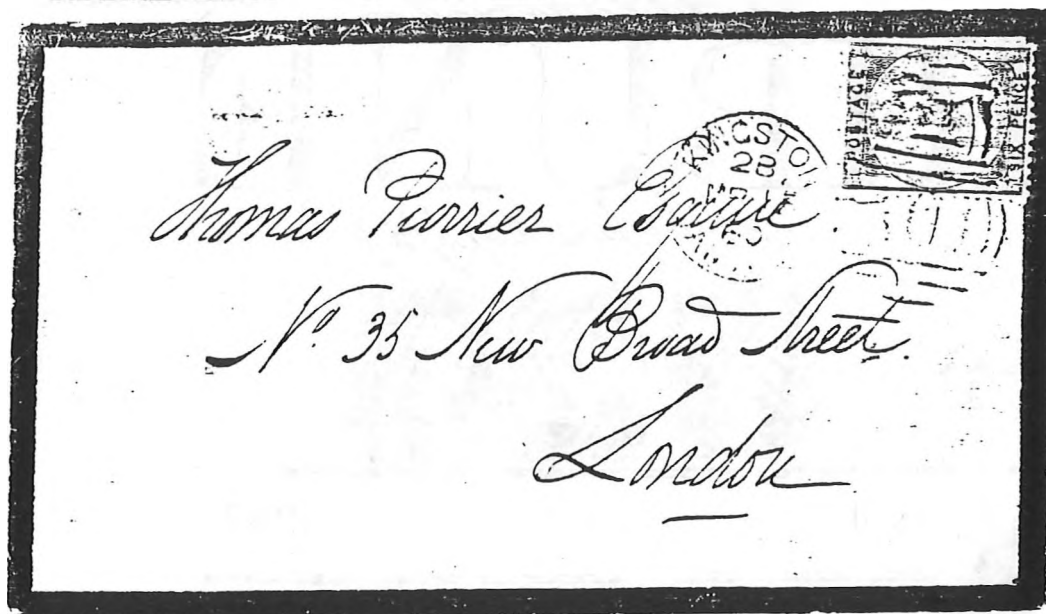 POSTAGE
SIX PENCE
KINGSTO
28
Thomas Purrier Esquire
Nº 35 New Broad Street.
London